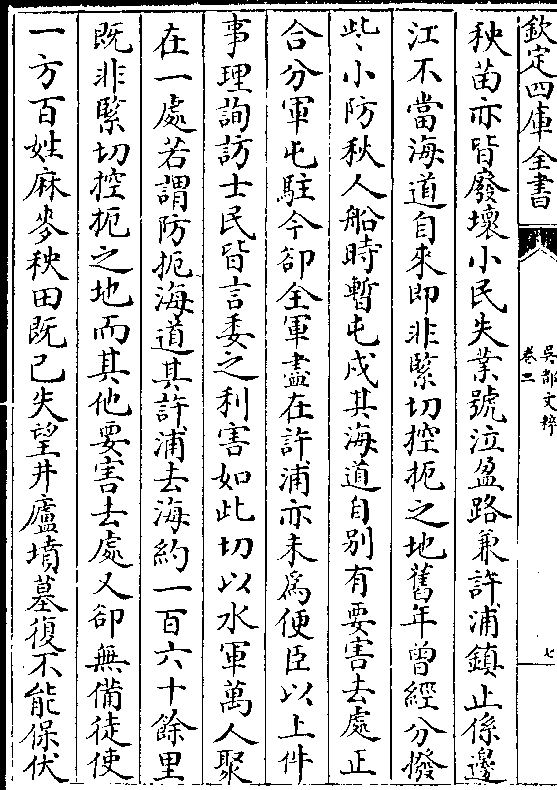 欽定四庫全書
吳都文粹
卷二
七
秧苗亦皆廢壞小民失業號泣盈路兼許浦鎮止係邊
江不當海道自來即非緊切控扼之地舊年曾經分撥
些小防秋人船時暫屯戍其海道自别有要害去處正
合分軍屯駐今卻全軍盡在許浦亦未為便臣以上件
事理詢訪士民皆言委之利害如此切以水軍萬人聚
在一處若謂防扼海道其許浦去海約一百六十餘里
既非緊切控扼之地而其他要害去處又卻無備徒使
一方百姓麻麥秧田既已失望井廬墳墓復不能保伏